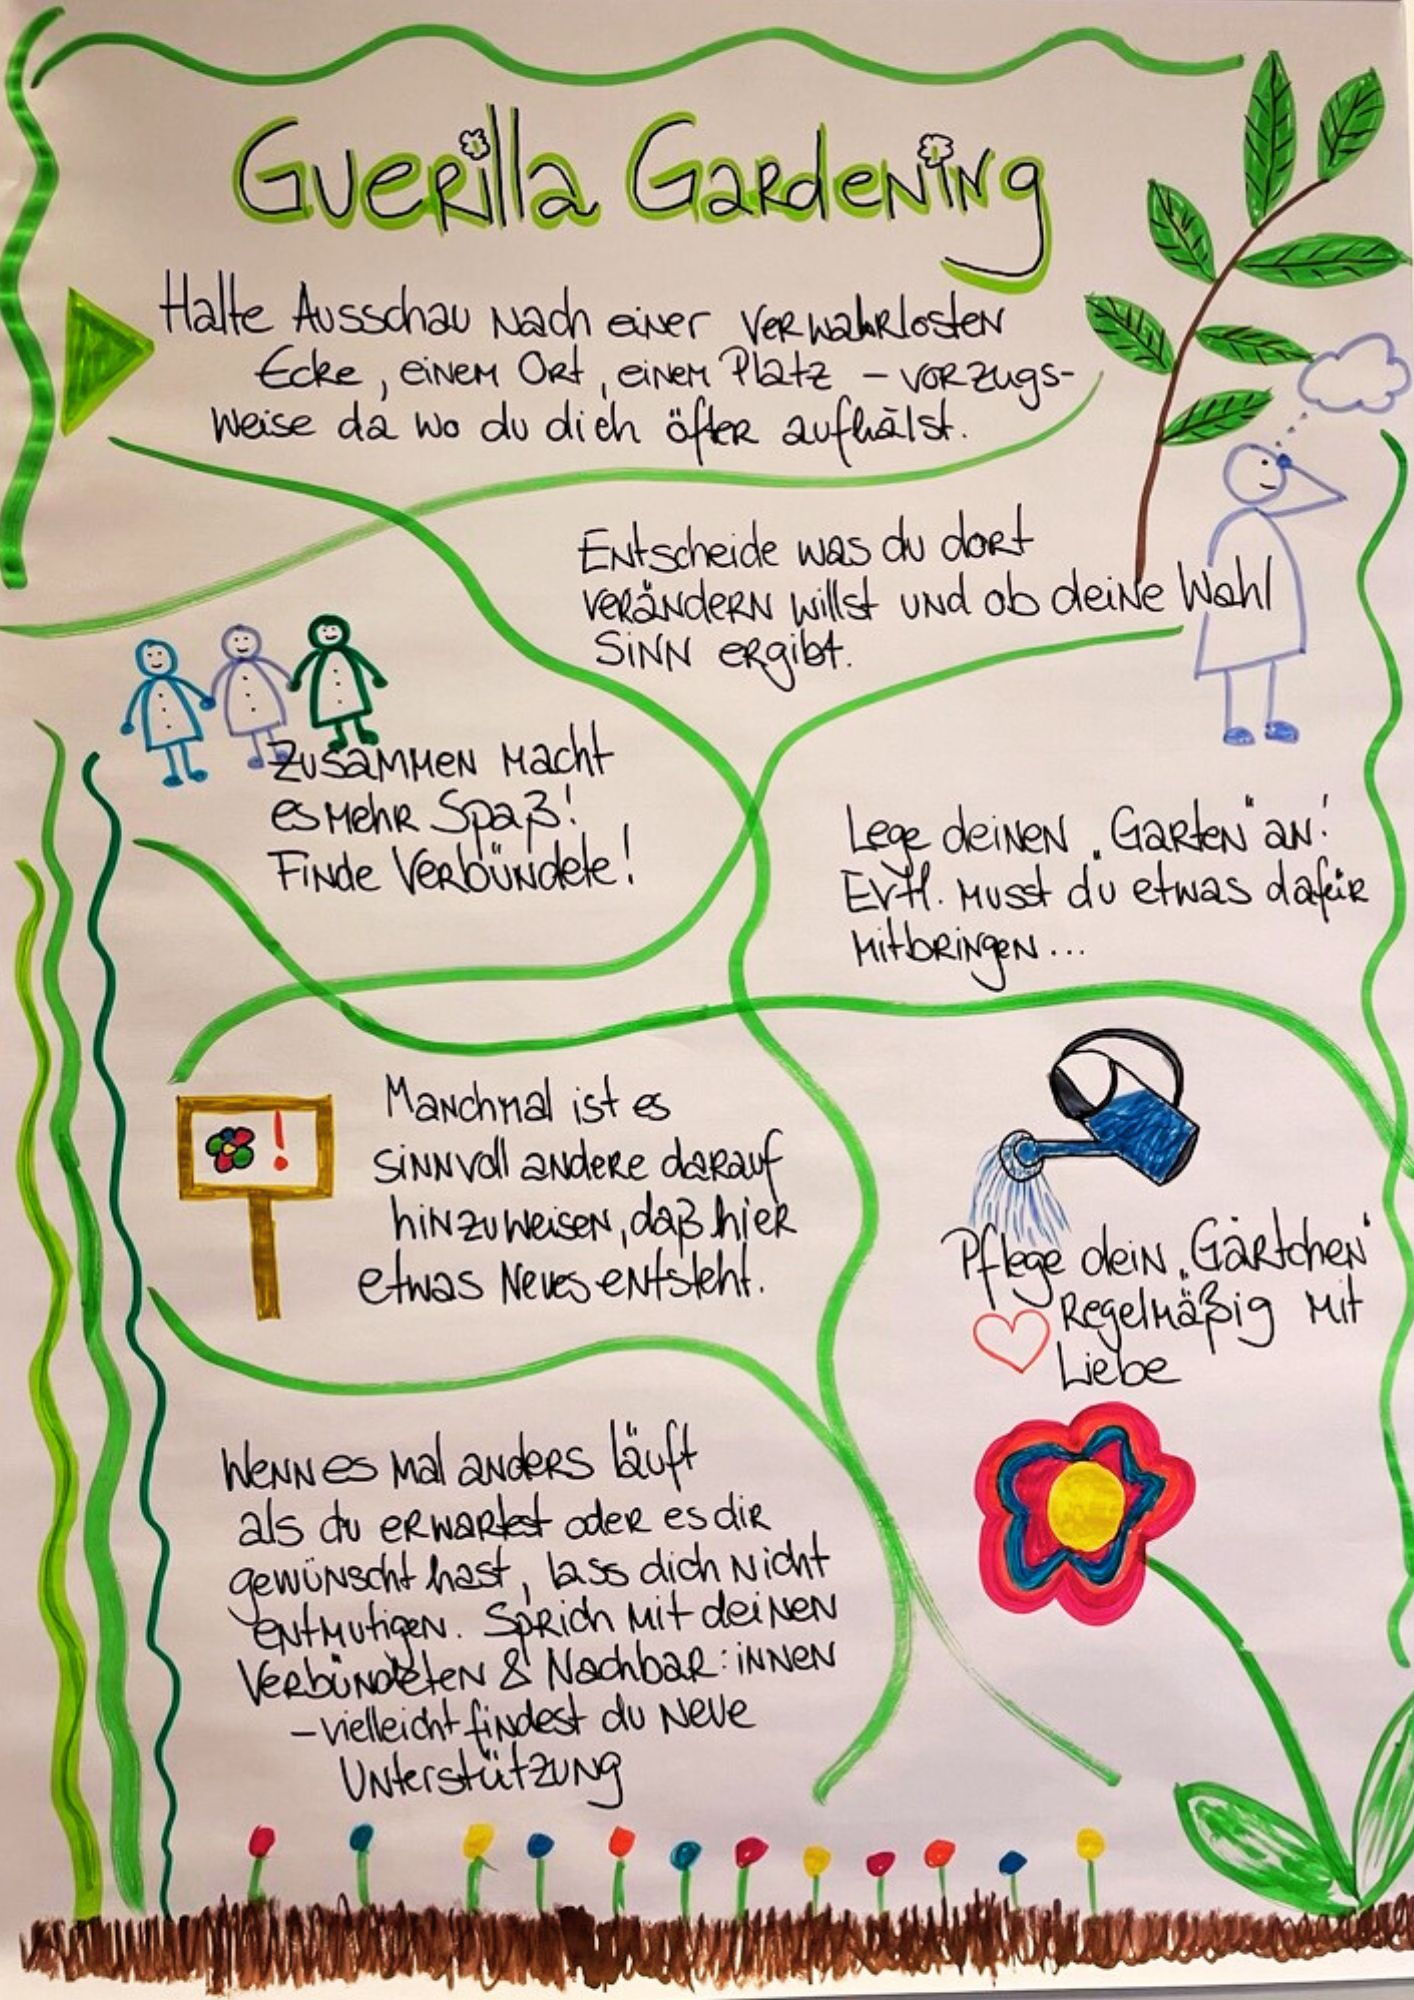 Guerilla Gardening
Halte Ausschau nach einer verwahrlosten
Ecke, einem Ort, einem Platz – vorzugs-
weise da wo du dich öfter aufhälst.
Entscheide was du dort
verändern willst und ob deine Wahl
Sinn ergibt.
Zusammen macht
es mehr Spaß!
Finde Verbündete!
Lege deinen „Garten" an!
Evtl. musst du etwas dafür
mitbringen...
!
Manchmal ist es
sinnvoll andere darauf
hinzuweisen, daß hier
etwas Neues entsteht.
Pflege dein „Gärtchen"
Regelmäßig mit
Liebe
Wenn es mal anders läuft
als du erwartest oder es dir
gewünscht hast, lass dich nicht
entmutigen. Sprich mit deinen
Verbündeten & Nachbar:innen
– vielleicht findest du neue
Unterstützung